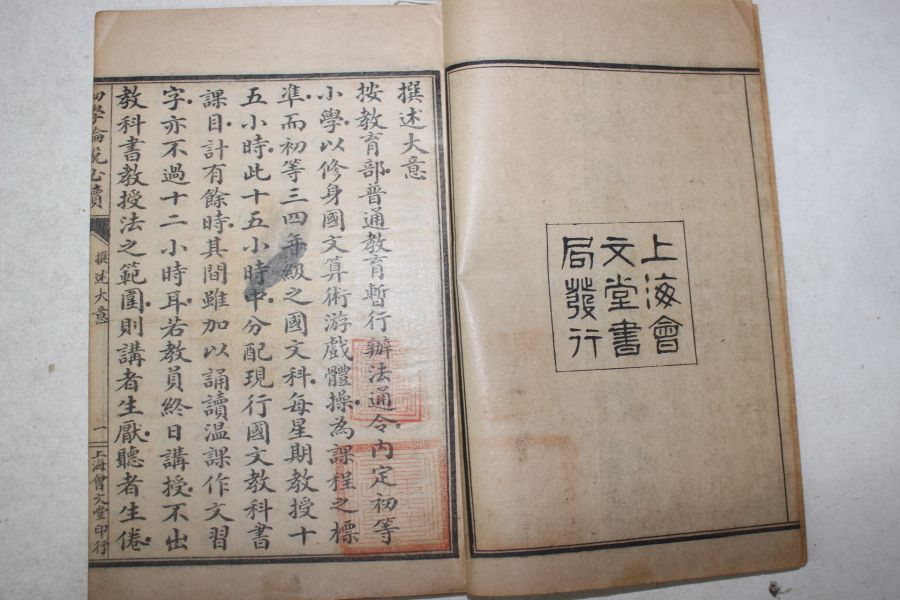 上海會
文堂書
局發行
撰述大意
按教育部普通教育暫行辦法通令內定初等
小學以修身國文算術游戲體操為課程之標
準而初等三四年級之國文科每星期教授十
五小時此十五小時中分配現行國文教科書
課目計有餘時其間雖加以誦讀温課作文習
字亦不過十二小時耳若教員終日講授不出
教科書教授法之範圍則講者生厭聽者生倦
初學論說必讀
撰述大意
一
上海會文堂印行